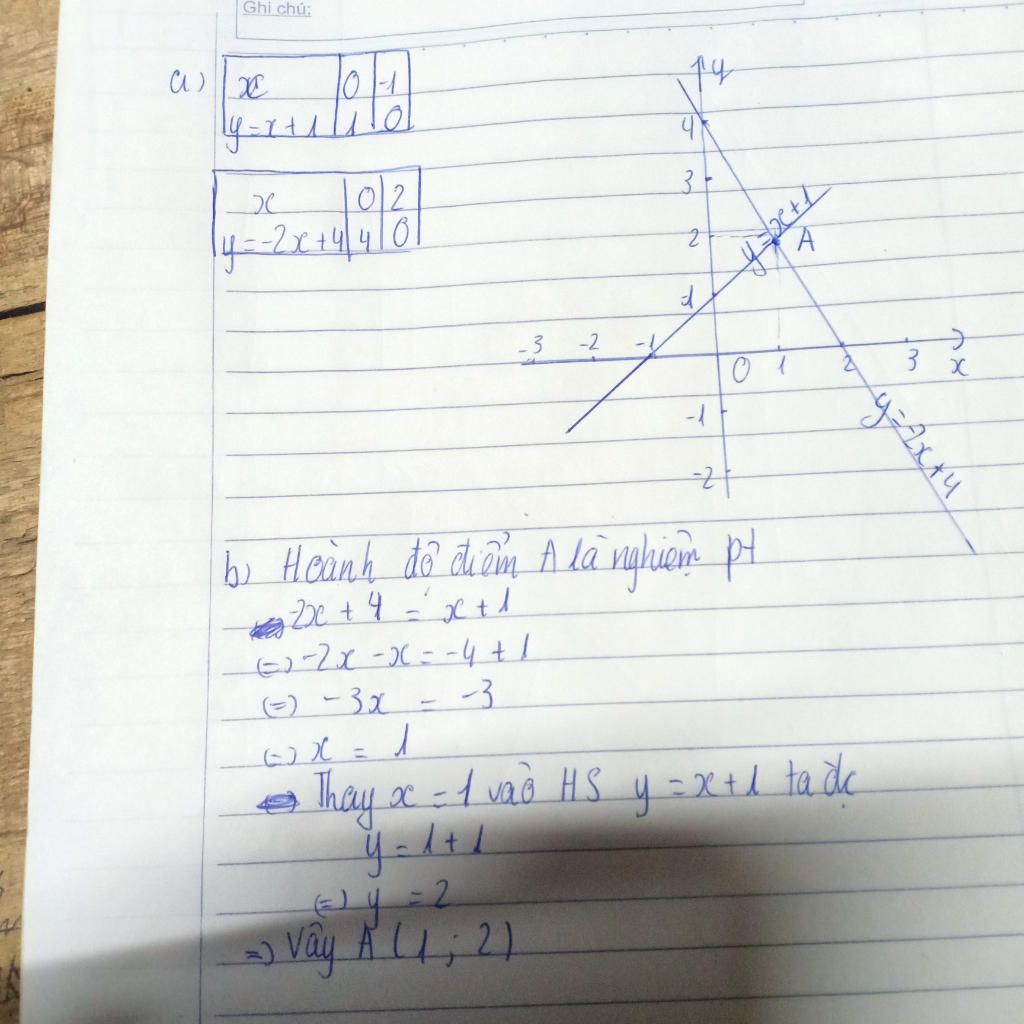 Ghi chú:
a)
x 0 -1
y=x+1 1 0
x 0 2
y=-2x+4 4 0
y
4
3
2
1
y=x+1
A
-3 -2 -1 0 1 2 3 x
-1
-2
y=-2x+4
b) Hoành độ điểm A là nghiệm pt
-2x + 4 = x + 1
(=) -2x - x = -4 + 1
(=) -3x = -3
(=) x = 1
Thay x = 1 vào HS y = x+1 ta đc
y = 1 + 1
(=) y = 2
=) Vậy A (1 ; 2)